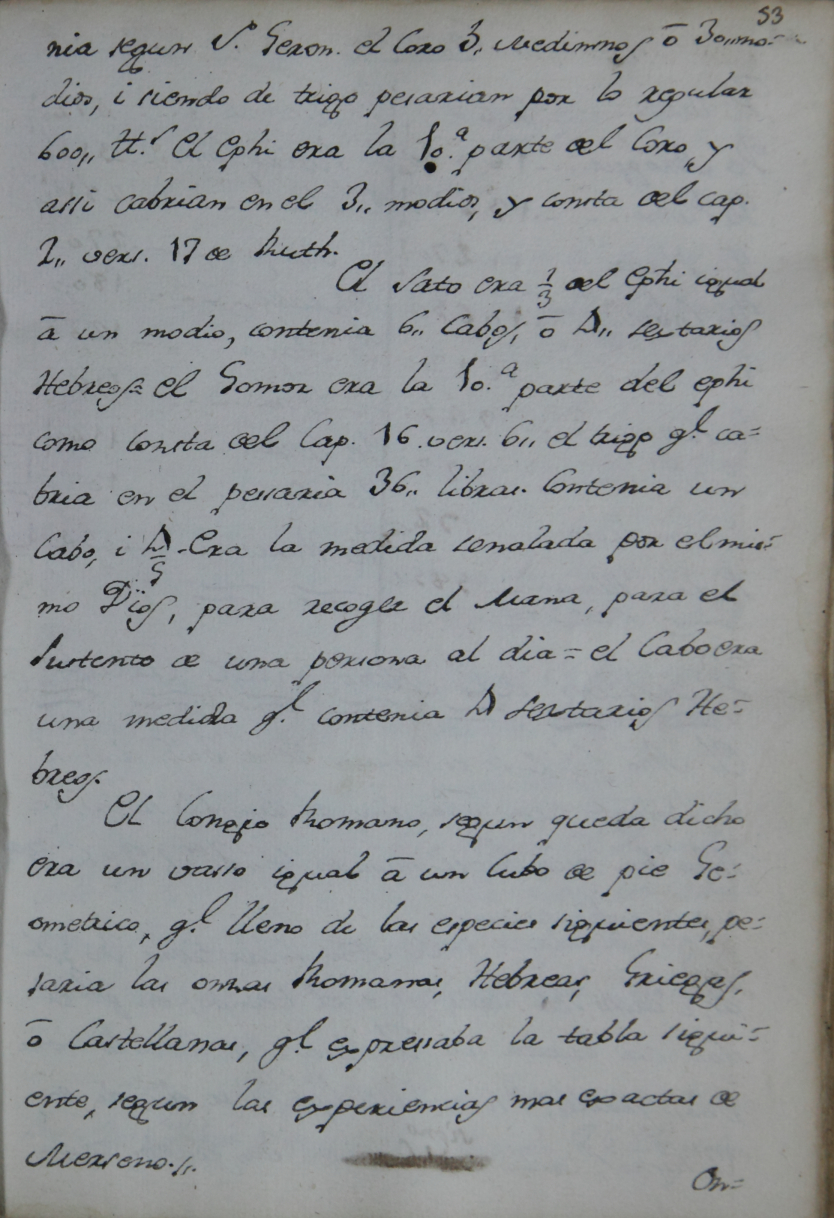 53
nia segun S.º Geron. el Coro 3,, Medimnos ō 30,, mo=
dios, i siendo de trigo pesarian por lo regular
600,, tt.ˢ El Ephi era la 10.ª parte del Coro, y
assi cabrian en el 3,, modios, y consta del cap.
2,, vers. 17 de Ruth.
El Sato era 1/3 del Ephi igual
ā un modio, contenia 6,, Cabos, ō 24,, sextarios
Hebreos = el Gomor era la 10.ª parte del ephi
como consta del Cap. 16 vers. 6,, el trigo q.ˡ ca=
bria en el pesaria 36,, libras. Contenia un
Cabo, i 4/5. Era la medida senalada por el mis=
mo Dios, para recoger el Mana, para el
sustento de una persona al dia = el Cabo era
una medida q.ˡ contenia 4 sextarios He=
breos.
El Congio Romano, segun queda dicho
era un vasso igual ā un Cubo de pie Ge=
ometrico, q.ˡ lleno de las especies siguientes, pe=
saria las onzas Romanas, Hebreas, Griegas,
ō Castellanas, q.ˡ expressaba la tabla sigui=
ente, segun las experiencias mas exactas de
Merseno.,,
On=